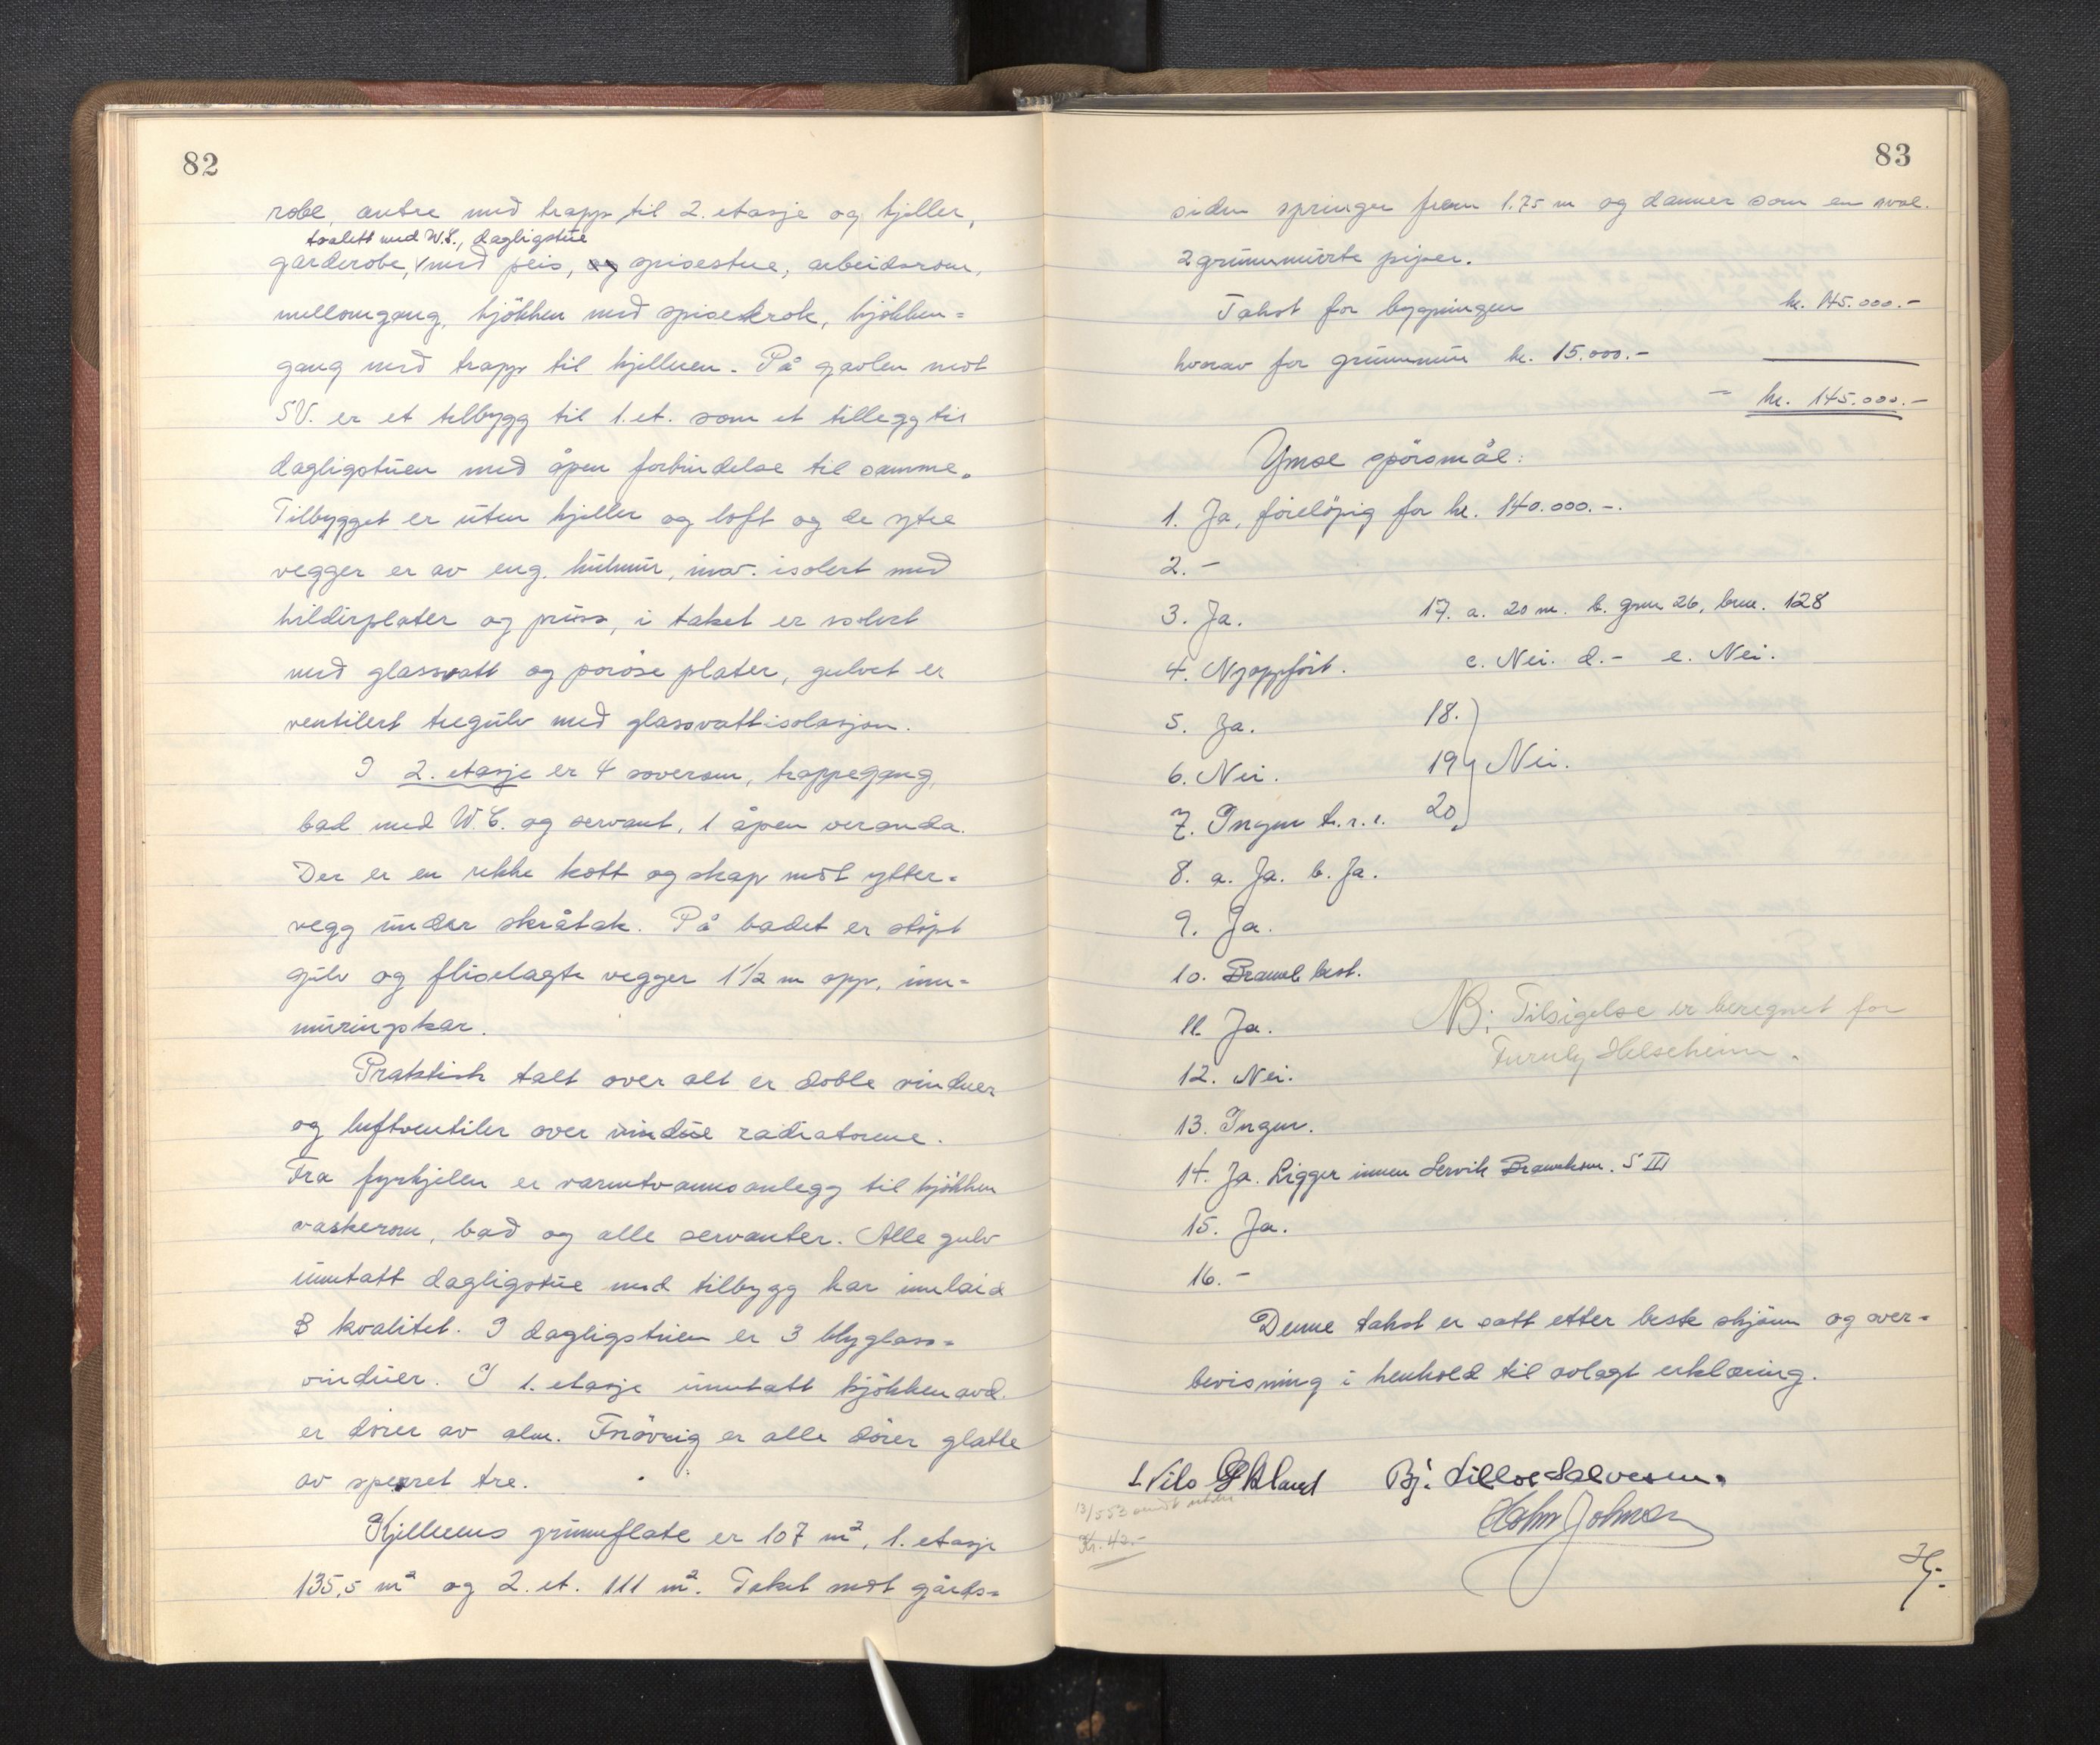 82
robe, entre med trapp til 2. etasje og kjeller,
toalett med W.C., dagligstue
garderobe, med peis, og spisestue, arbeidsrom,
mellomgang, kjökken med spisekrok, kjökken=
gang med trapp til kjelleren. På gavlen mot
SV. er et tilbygg til 1. et. som et tillegg til
dagligstuen med åpen forbindelse til samme.
Tilbygget er uten kjeller og loft og de ytre
vegger er av eng. hulmur, inv. isolert med
bildirplater og puss, i taket er isolert
med glassvatt og poröse plater, gulvet er
ventilert tregulv med glassvattisolasjon.
I 2. etasje er 4 soverom, trappegang,
bad med W.C. og servant, 1 åpen veranda.
Der er en rekke kott og skap mot ytter=
vegg under skråtak. På badet er stöpt
gulv og fliselagte vegger 1½ m opp, inn=
muringskar.
Praktisk talt over alt er doble vinduer
og luftventiler over radiatorene.
Fra fyrkjelen er varmtvannsanlegg til kjökken
vaskerom, bad og alle servanter. Alle gulv
unntatt dagligstue med tilbygg har innlaid
B kvalitet. I dagligstuen er 3 blyglass=
vinduer. I 1. etasje unntatt kjökkenavd.
er dörer av alm. Forövrig er alle dörer glatte
av sperret tre.
Kjellerens grunnflate er 107 m², 1. etasje
135,5 m² og 2. et. 111 m². Taket mot gårds=
83
siden springer frem 1.75 m og danner som en sval.
2 grunnmurte piper.
Takst for bygningen kr. 145.000.-
hvorav for grunnmur kr. 15.000.-
- kr. 145.000.-
Ymse spörsmål:
1. Ja, foreløpig for kr. 140.000.-.
2. -
3. Ja. 17. a. 20 m. b. gnr. 26, bnr. 128
4. Nyoppfört. c. Nei. d. - e. Nei.
5. Ja. 18.
6. Nei. 19 Nei.
7. Ingen t.r.i. 20.
8. a. Ja. b. Ja.
9. Ja.
10. Brannb. best.
11. Ja. NB: Tilsigelse er beregnet for
12. Nei. Furuly Helseheim.
13. Ingen.
14. Ja. Ligger innen Lervik Brannkom. S III
15. Ja.
16. -
Denne takst er satt etter beste skjönn og over=
bevisning i henhold til avlagt erklæring.
Nils Ökland Bj. Lilloe Salvesen.
13/553
Kr. 42.-